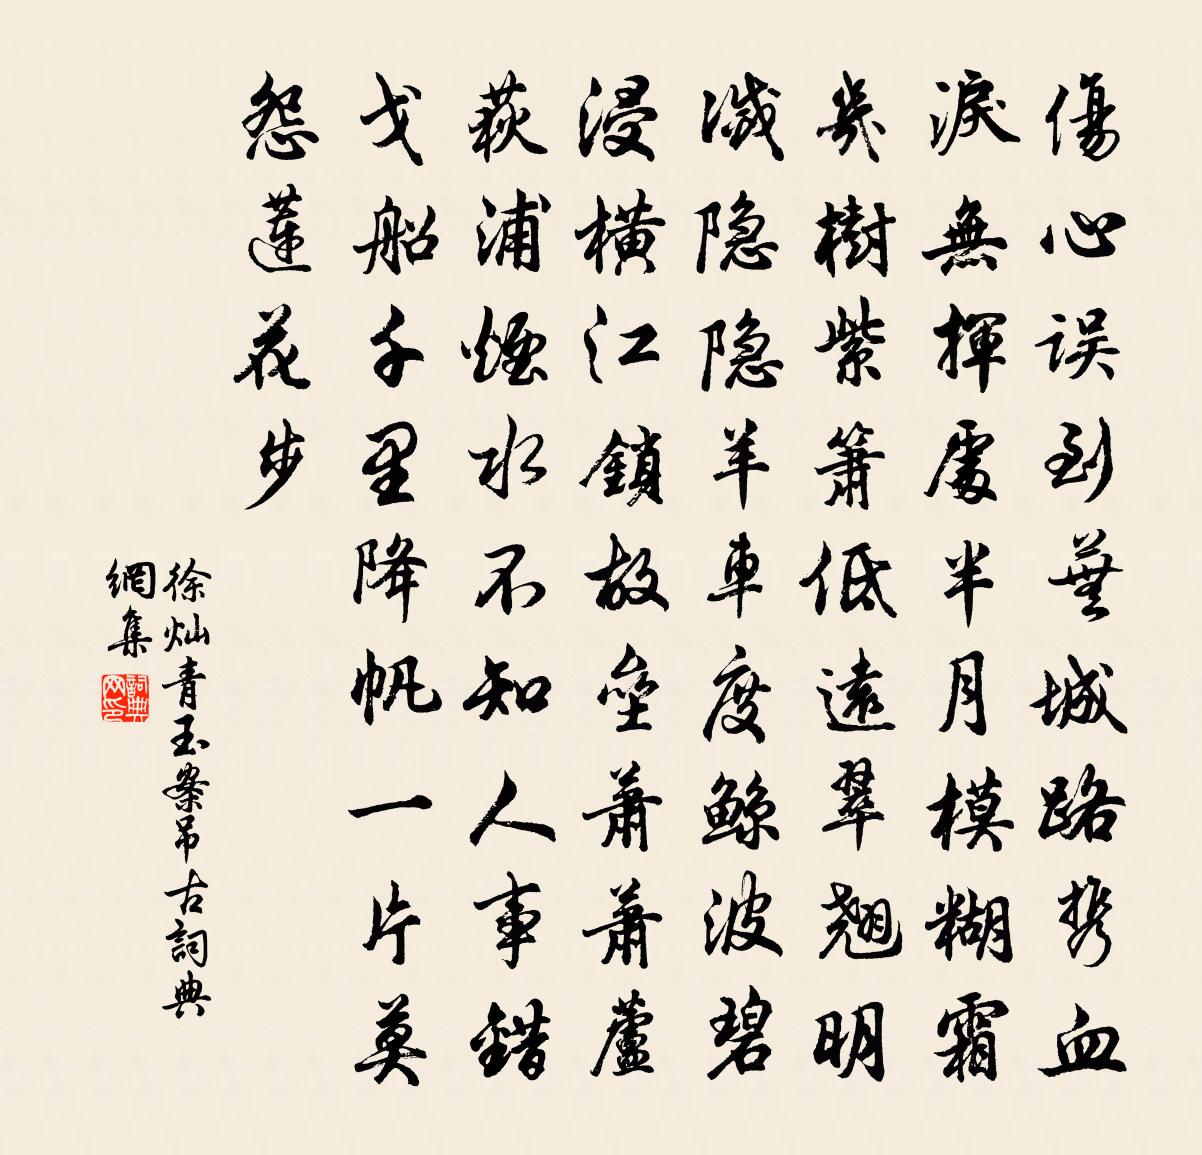 傷心误到蕪城路携血
淚無揮處半月模糊霜
幾樹紫簫低遠翠翹明
滅隐隐羊車度鲸波碧
浸横江鎖故垒蕭蕭蘆
荻浦煙水不知人事錯
戈船千里降帆一片莫
怨蓮花步
徐灿青玉案吊古詞典
網集
詞典
网印